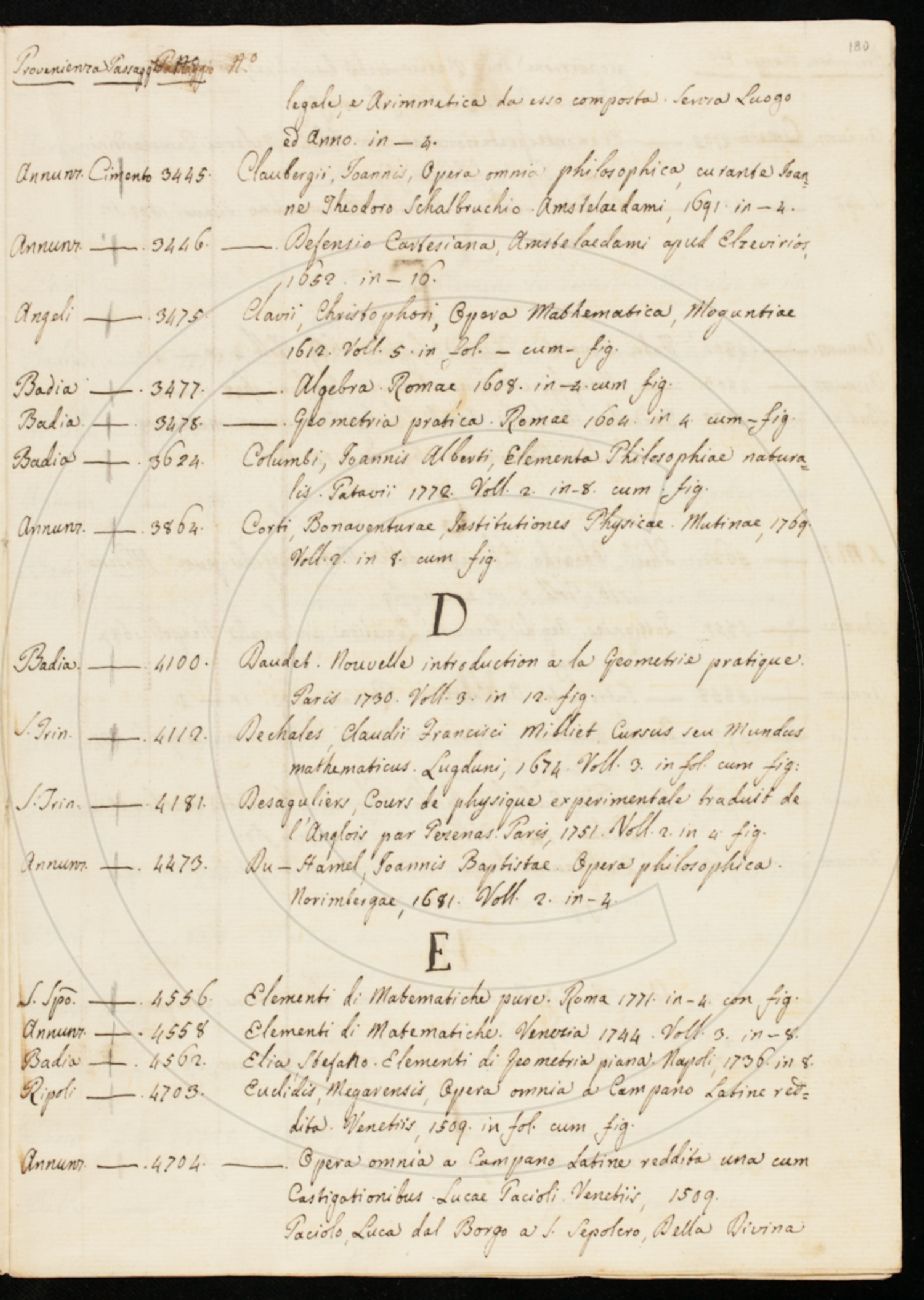 180
Provenienza Passagg. Passaggio N.o
legale, e Arimmetica da esso composta. Senza Luogo
ed Anno. in — 4.
Annunz. Cimento 3445. Claubergii, Joannis, Opera omnia philosophica, curante Joan=
ne Theodoro Schalbruchio. Amstelaedami, 1691. in — 4.
Annunz. — . 3446. — . Defensio Cartesiana, Amstelaedami apud Elzevirios,
1652. in — 16.
Angeli — . 3475. Clavii, Christophori, Opera Mathematica, Moguntiae
1612. Voll. 5. in fol. — cum — fig.
Badia — . 3477. — . Algebra. Romae, 1608. in — 4. cum fig.
Badia — 3478. — . Geometria pratica. Romae 1604. in 4. cum — fig.
Badia — . 3624. Columbi, Joannis Alberti, Elementa Philosophiae natura=
lis. Patavii 1772. Voll. 2. in — 8. cum fig.
Annunz. — . 3864. Corti, Bonaventurae, Institutiones Physicae. Mutinae, 1769.
Voll. 2. in 8. cum fig.
D
Badia. — . 4100. Daudet. Nouvelle introduction a la Geometrie pratique.
Paris 1730. Voll. 3. in 12. fig.
S. Trin. — . 4112. Dechales, Claudii Francisci Milliet, Cursus seu Mundus
mathematicus. Lugduni, 1674. Voll. 3. in fol. cum fig:
S. Trin. — . 4181. Desaguliers, Cours de physique experimentale traduit de
l'Anglois par Pezenas. Paris, 1751. Voll. 2. in 4. fig.
Annunz. — . 4473. Du — Hamel, Joannis Baptistae. Opera philosophica.
Norimbergae, 1681. Voll. 2. in — 4.
E
S. Spo. — . 4556. Elementi di Matematiche pure. Roma 1771. in — 4. con fig.
Annunz. — . 4558 Elementi di Matematiche. Venezia 1744. Voll. 3. in — 8.
Badia — . 4562. Elia, Stefano. Elementi di Geometria piana. Napoli, 1736. in 8.
Ripoli — . 4703. Euclidis, Megarensis, Opera omnia a Campano Latine red=
dita. Venetiis, 1509. in fol. cum fig.
Annunz. — . 4704. — . Opera omnia a Campano Latine reddita una cum
Castigationibus Lucae Pacioli. Venetiis, 1509.
Paciolo, Luca dal Borgo a S. Sepolcro, Della Divina